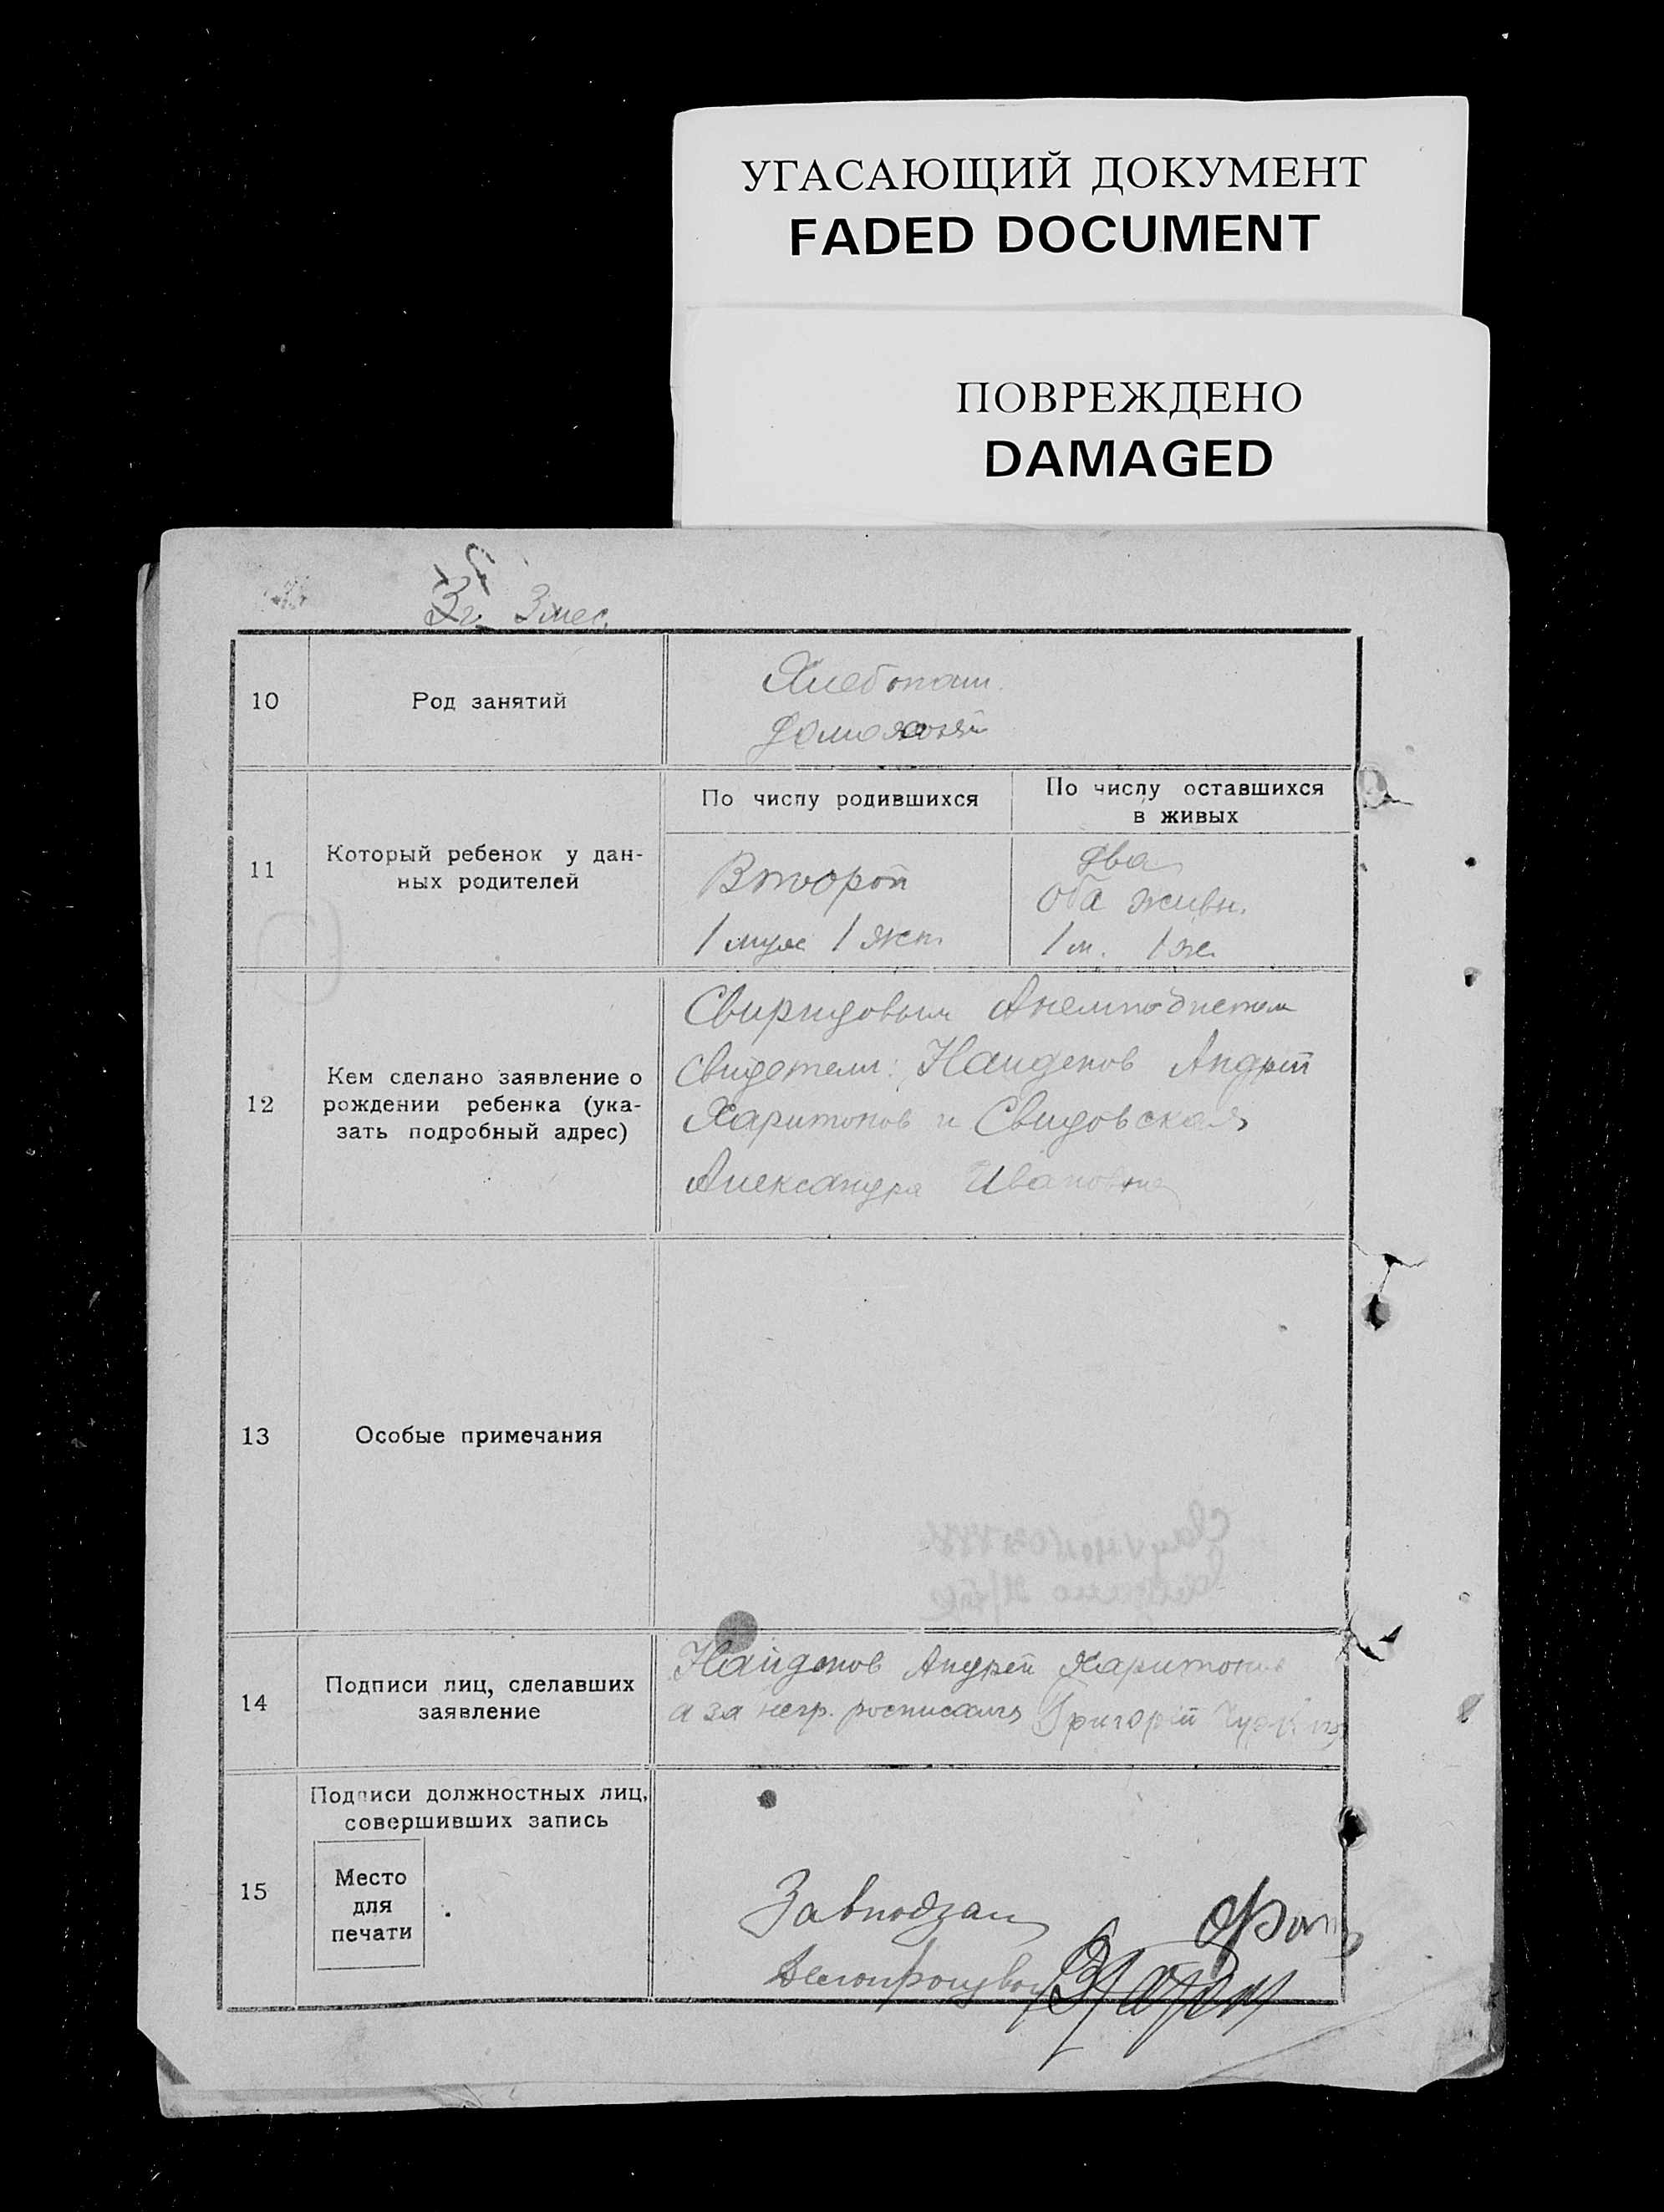 УГАСАЮЩИЙ ДОКУМЕНТ
FADED DOCUMENT
ПОВРЕЖДЕНО
DAMAGED
3г. 3 мес.
10
Род занятий
Хлебопаш.
домохозяй
11
Который ребенок у дан-
ных родителей
По числу родившихся
По числу оставшихся
в живых
Второй
1 муж 1 жен.
два
Оба живы.
1 м. 1 ж.
12
Кем сделано заявление о
рождении ребенка (ука-
зать подробный адрес)
Свиридовым
свидетели: Найденов Андрей
Харитонов и Свидовская
Александра Ивановна
13
Особые примечания
14
Подписи лиц, сделавших
заявление
Найденов Андрей Харитонов
а за негр. росписался Григорий
15
Подписи должностных лиц,
совершивших запись
Место
для
печати
Завподзаг
Делопроизвод